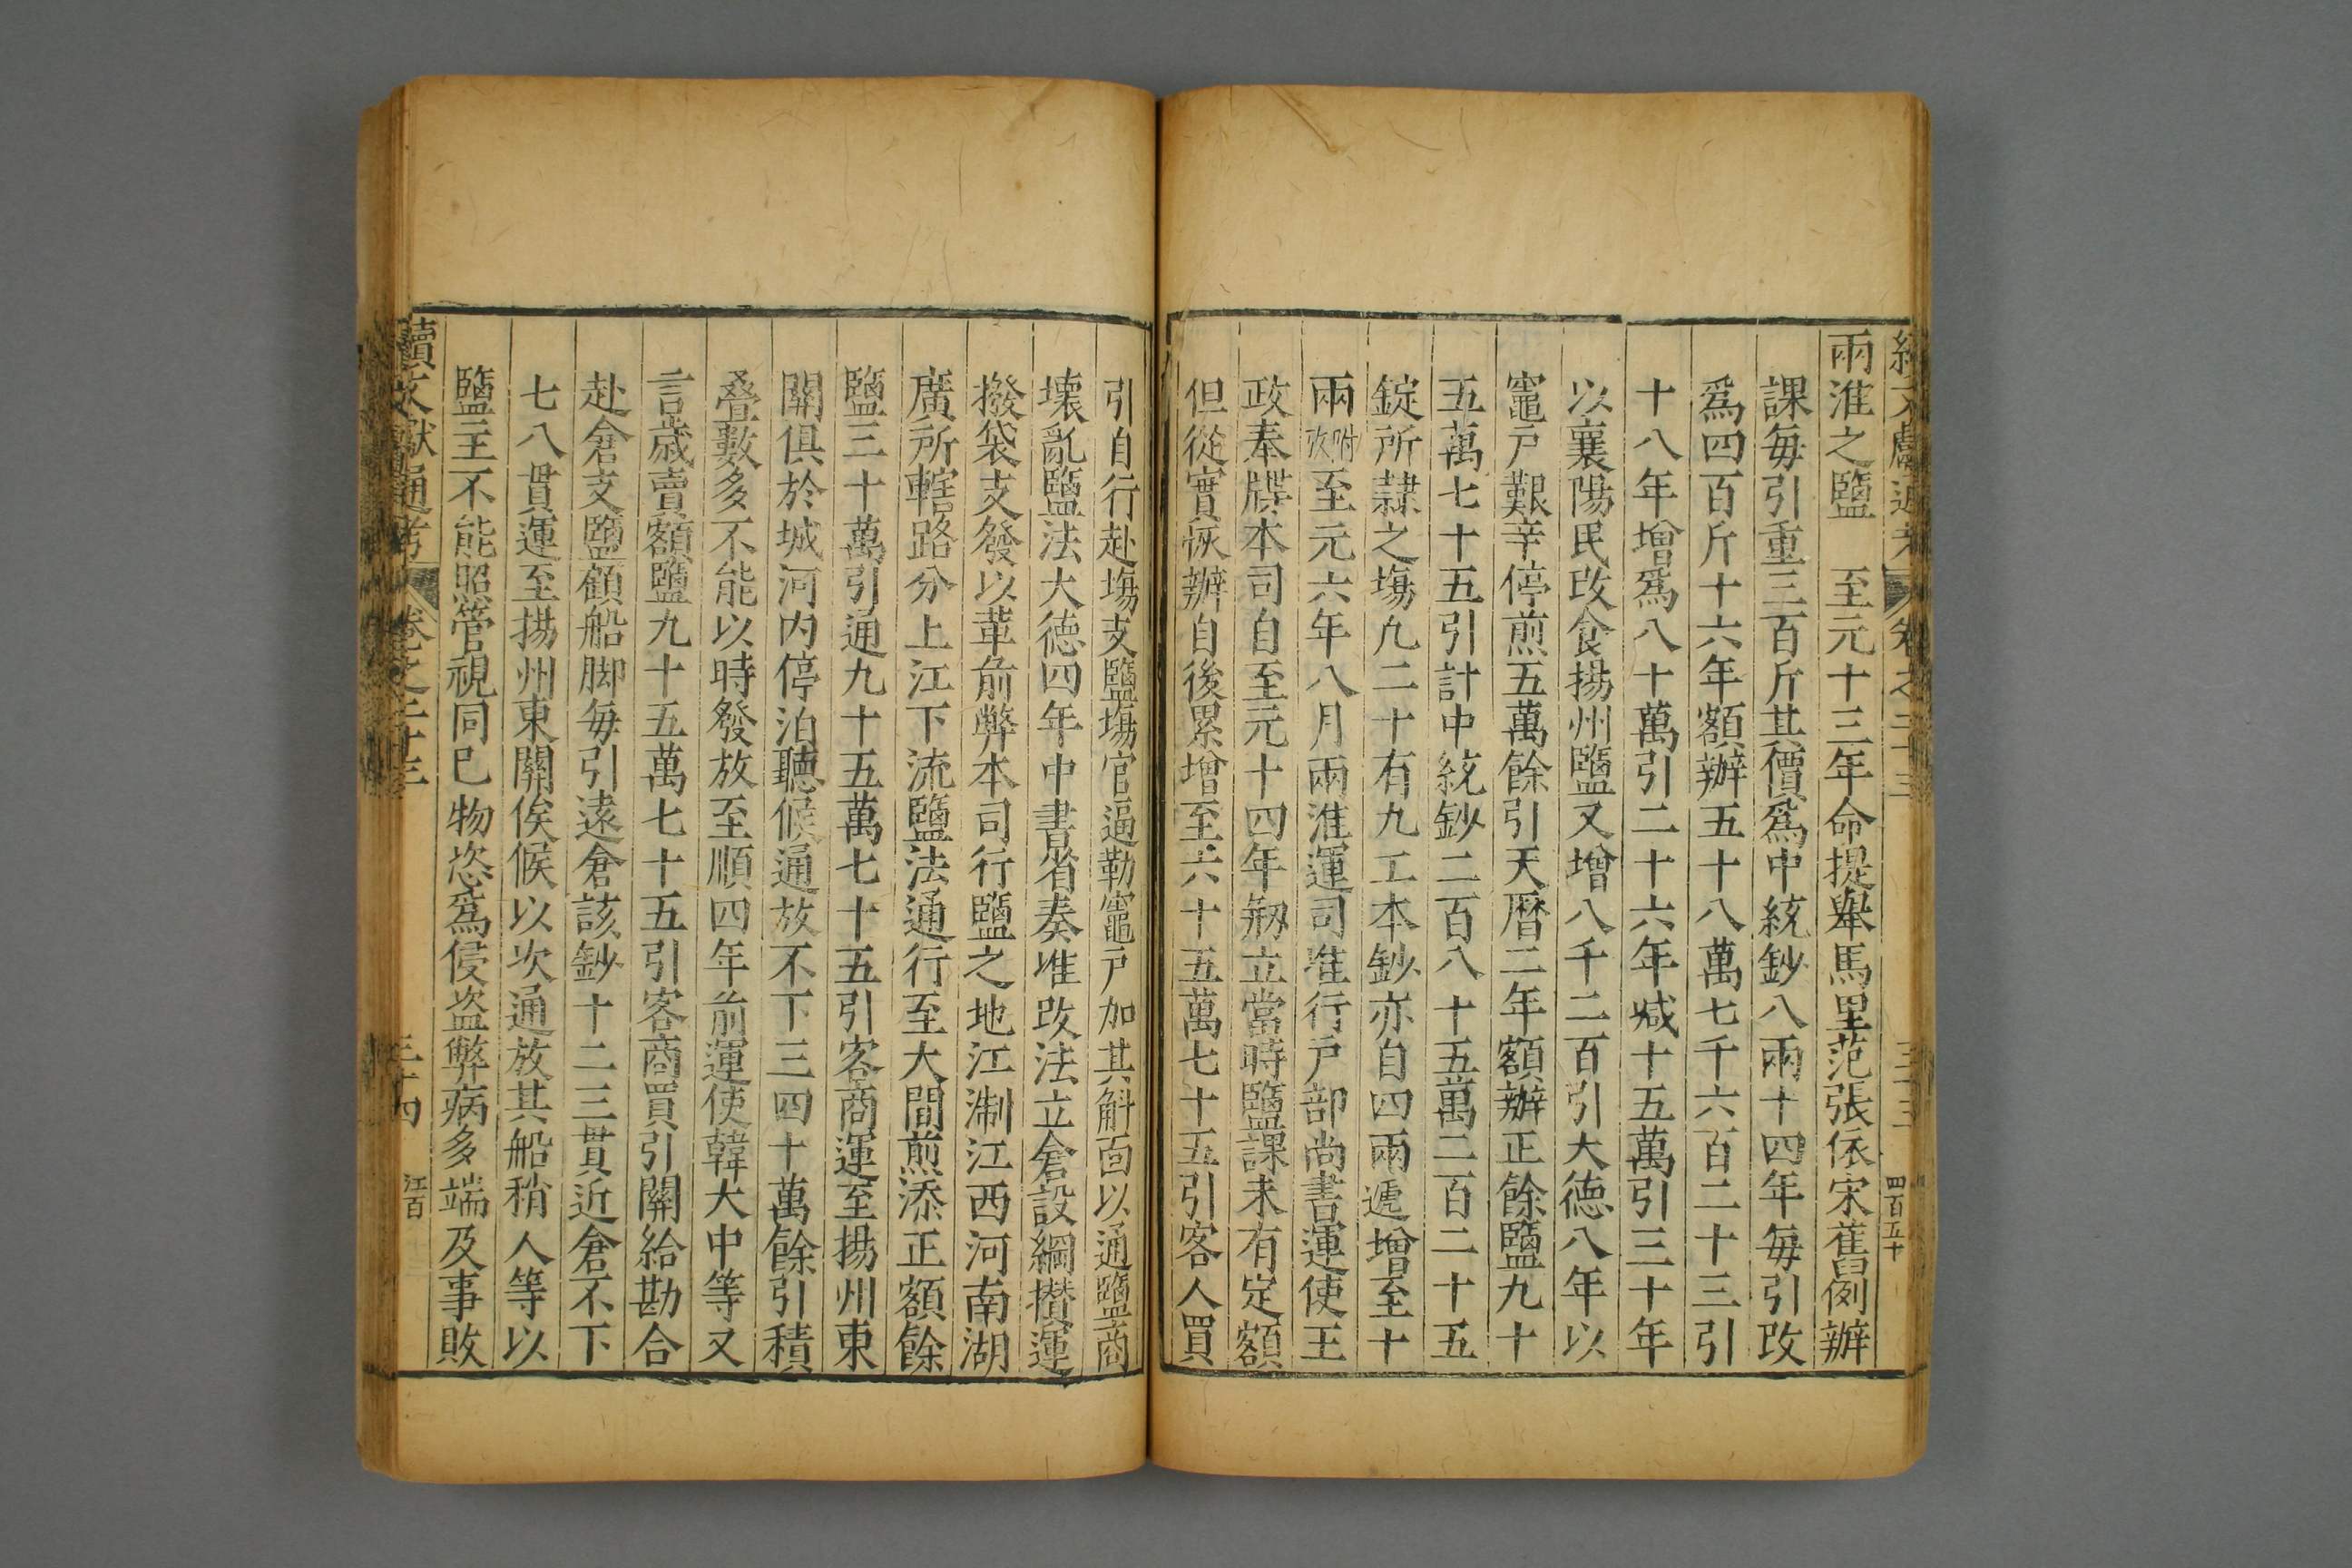 兩淮之鹽　至元十三年命提舉馬里范張依宋舊例辦
課每引重三百斤其價爲中統鈔八兩十四年每引改
爲四百斤十六年額辦五十八萬七千六百二十三引
十八年增爲八十萬引二十六年减十五萬引三十年
以襄陽民改食揚州鹽又增八千二百引大德八年以
竈戶艱辛停煎五萬餘引天曆二年額辦正餘鹽九十
五萬七十五引計中統鈔二百八十五萬二百二十五
錠所隷之塲九二十有九工本鈔亦自四兩遞增至十
兩附攷至元六年八月兩淮運司准行戶部尚書運使王
政奉牒本司自至元十四年剏立當時鹽課未有定額
但從實恢辦自後累增至六十五萬七十五引客人買
引自行赴塲支鹽塲官逼勒竈戶加其斛面以通鹽商
壊亂鹽法大德四年中書省奏准改法立倉設綱攅運
撥袋支發以革前弊本司行鹽之地江淛江西河南湖
廣所轄路分上江下流鹽法通行至大間煎添正額餘
鹽三十萬引通九十五萬七十五引客商運至揚州東
關俱於城河内停泊聽候通放不下三四十萬餘引積
叠數多不能以時發放至順四年前運使韓大中等又
言歲賣額鹽九十五萬七十五引客商買引關給勘合
赴倉支鹽顧船脚每引遠倉該鈔十二三貫近倉不下
七八貫運至揚州東關俟候以次通放其船稍人等以
鹽主不能照管視同已物恣爲侵盗弊病多端及事敗
續文獻通考　卷之二十三　三十四　江百
四百五十